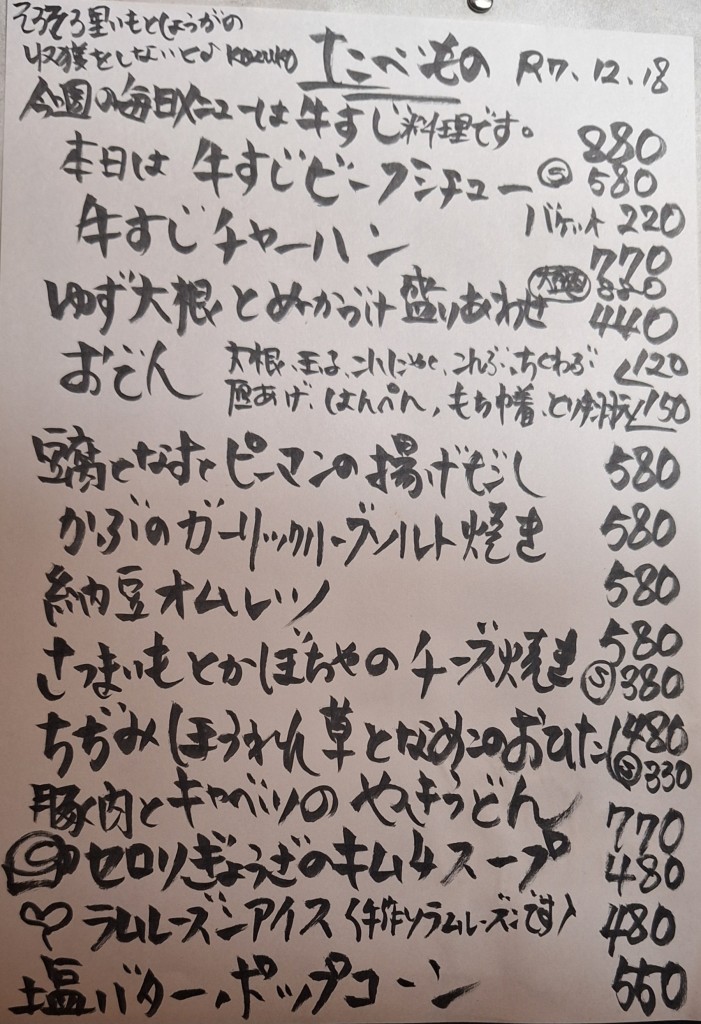 そろそろ里いもとしょうがの
収穫をしないと♪ kazuko
たべもの R7.12.18
今週の毎日メニューは牛すじ料理です。
本日は 牛すじビーフシチュー 880
Ⓢ 580
バケット 220
牛すじチャーハン 770
大盛 880
ゆず大根とぬかづけ盛りあわせ 440
おでん 大根、玉子、こんにゃく、こんぶ、ちくわぶ 120
厚あげ、はんぺん、もち巾着、とり 150
豆腐となすとピーマンの揚げだし 580
かぶのガーリックハーブソルト焼き 580
納豆オムレツ 580
さつまいもとかぼちゃのチーズ焼き 580
Ⓢ 380
ちぢみほうれん草となめこのおひたし 480
Ⓢ 330
豚肉とキャベツのやきうどん 770
セロリぎょうざのキムチスープ 480
♡ ラムレーズンアイス(手作りラムレーズンです) 480
塩バターポップコーン 550